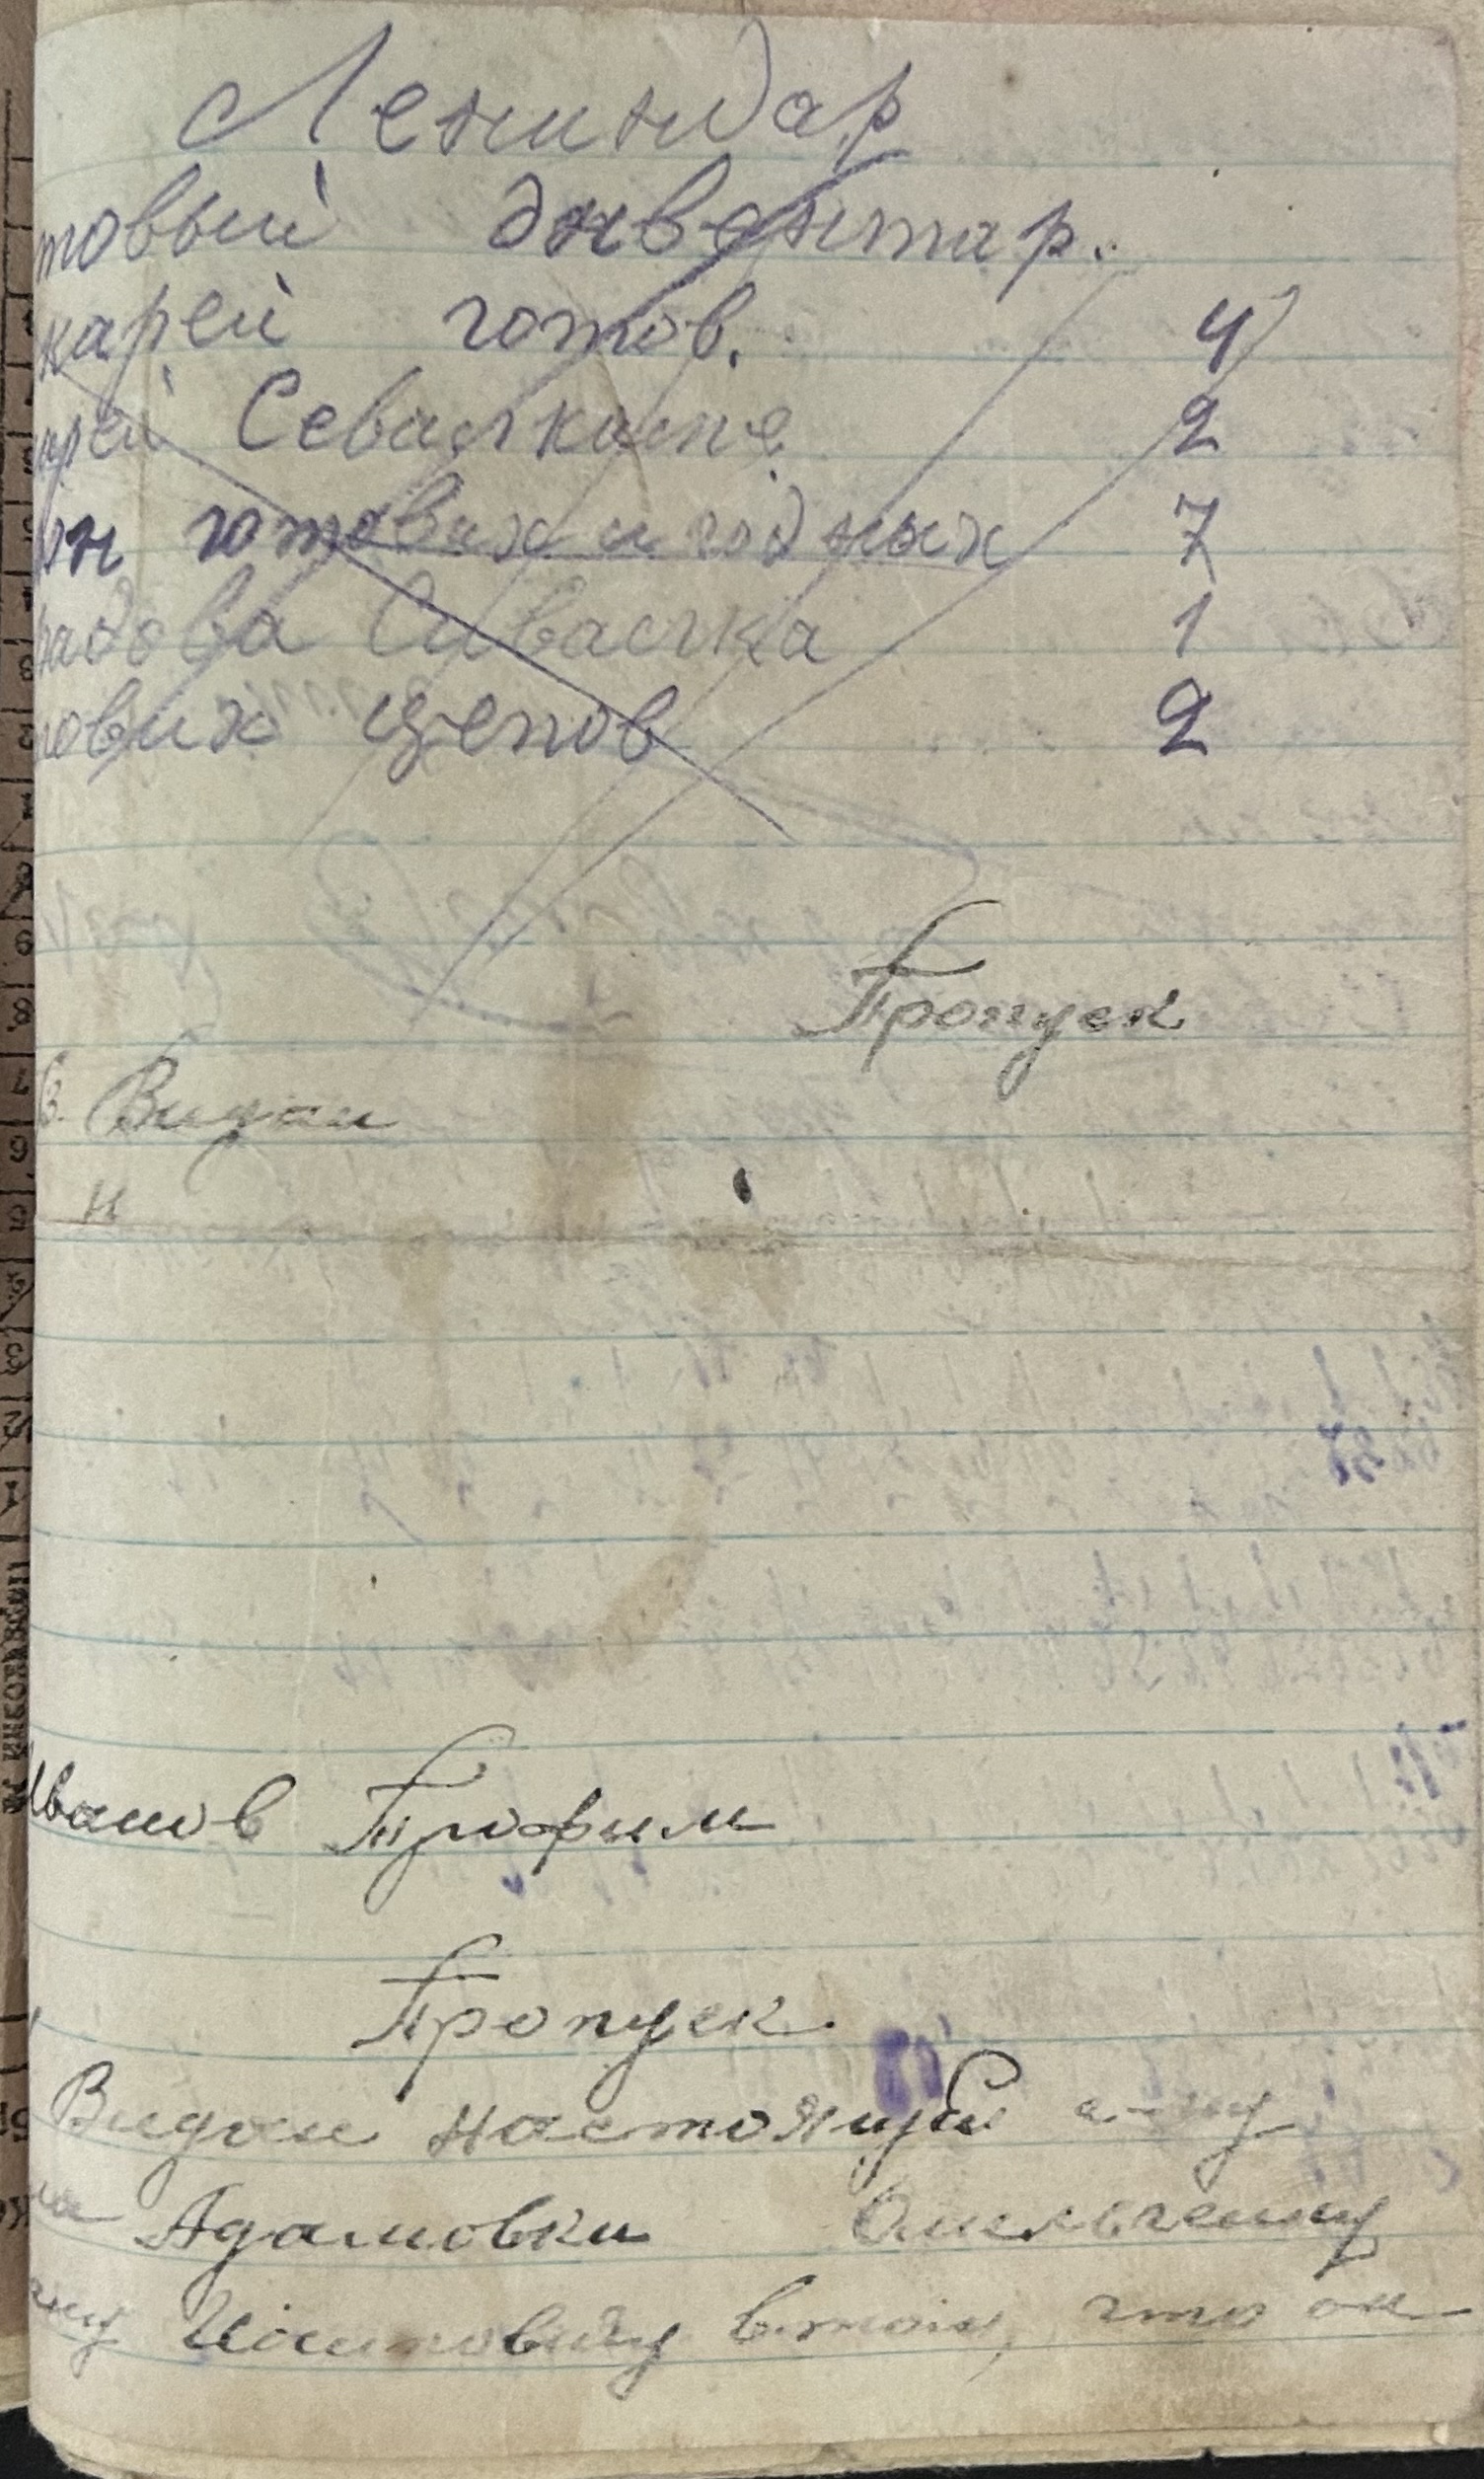 Лениндар
товый энвентар.
карей готов. 4
арей Севалкампе 2
он готових и годных 7
радова Сивасчка 1
нових цепов 2
Пропуск
В. Видан
н
Иванов Трофим
Пропуск
Видан настоящий
на Адамовки Омельченку
Иосиповичу в том, что он